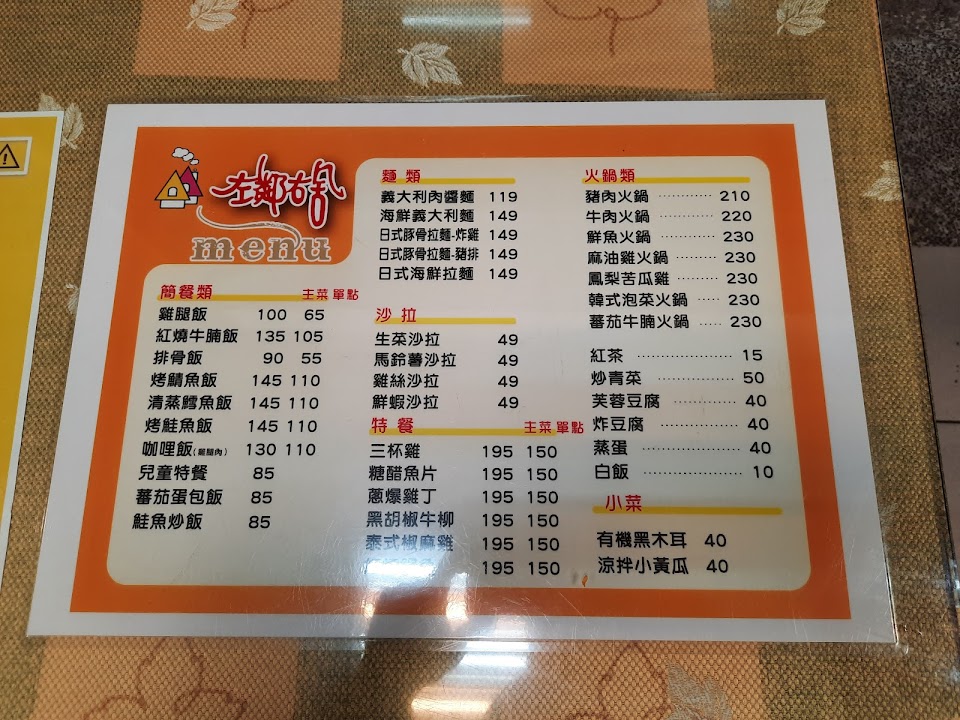 左鄰右舍
menu
簡餐類 主菜 單點
雞腿飯 100 65
紅燒牛腩飯 135 105
排骨飯 90 55
烤鯖魚飯 145 110
清蒸鱈魚飯 145 110
烤鮭魚飯 145 110
咖哩飯(雞腿肉) 130 110
兒童特餐 85
蕃茄蛋包飯 85
鮭魚炒飯 85
麵類
義大利肉醬麵 119
海鮮義大利麵 149
日式豚骨拉麵-炸雞 149
日式豚骨拉麵-豬排 149
日式海鮮拉麵 149
沙拉
生菜沙拉 49
馬鈴薯沙拉 49
雞絲沙拉 49
鮮蝦沙拉 49
特餐 主菜 單點
三杯雞 195 150
糖醋魚片 195 150
蔥爆雞丁 195 150
黑胡椒牛柳 195 150
泰式椒麻雞 195 150
195 150
火鍋類
豬肉火鍋 ············ 210
牛肉火鍋 ············ 220
鮮魚火鍋 ············ 230
麻油雞火鍋 ········· 230
鳳梨苦瓜雞 ········· 230
韓式泡菜火鍋 ····· 230
蕃茄牛腩火鍋 ····· 230
紅茶 ···················· 15
炒青菜 ················ 50
芙蓉豆腐 ············· 40
炸豆腐 ················ 40
蒸蛋 ···················· 40
白飯 ···················· 10
小菜
有機黑木耳 40
涼拌小黃瓜 40